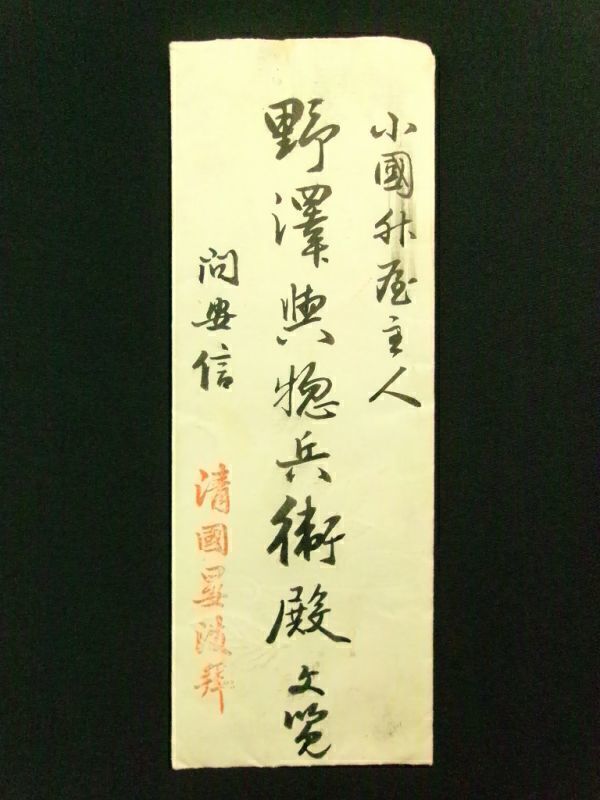 小國升屋主人
野澤與惣兵衛殿 文覧
問 信
清國 拜